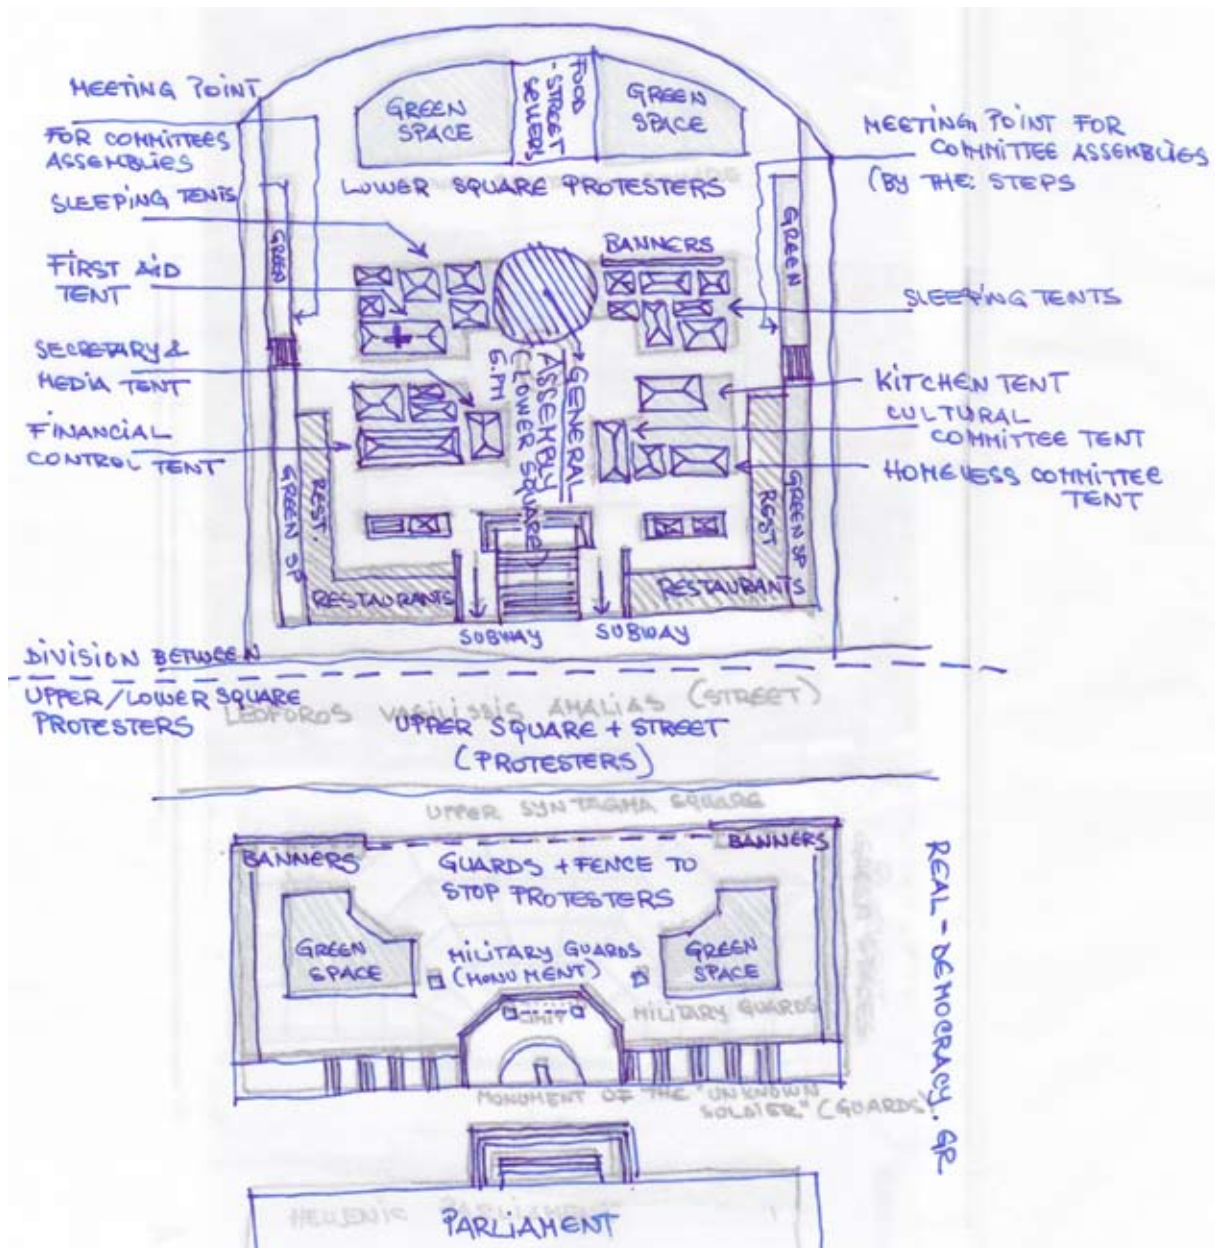 MEETING POINT
FOR COMMITTEES
ASSEMBLIES
SLEEPING TENTS
FIRST AID
TENT
SECRETARY &
MEDIA TENT
FINANCIAL
CONTROL TENT
GREEN
SPACE
FOOD
-STREET
SELLERS
GREEN
SPACE
LOWER SQUARE PROTESTERS
MEETING POINT FOR
COMMITTEE ASSEMBLIES
(BY THE STEPS
GREEN
GREEN
BANNERS
SLEEPING TENTS
KITCHEN TENT
CULTURAL
COMMITTEE TENT
HOMELESS COMMITTEE
TENT
GENERAL
ASSEMBLY
(LOWER SQUARE)
6.PM
GREEN SP
REST.
REST
GREEN SP
RESTAURANTS
RESTAURANTS
SUBWAY
SUBWAY
DIVISION BETWEEN
UPPER/LOWER SQUARE
PROTESTERS
LEOFOROS VASILISSIS AMALIAS (STREET)
UPPER SQUARE + STREET
(PROTESTERS)
UPPER SYNTAGMA SQUARE
BANNERS
BANNERS
GUARDS + FENCE TO
STOP PROTESTERS
GREEN
SPACE
MILITARY GUARDS
(MONUMENT)
GREEN
SPACE
MILITARY GUARDS
MONUMENT OF THE "UNKNOWN
SOLDIER" (GUARDS)
HELLENIC PARLIAMENT
PARLIAMENT
REAL-DEMOCRACY.GR